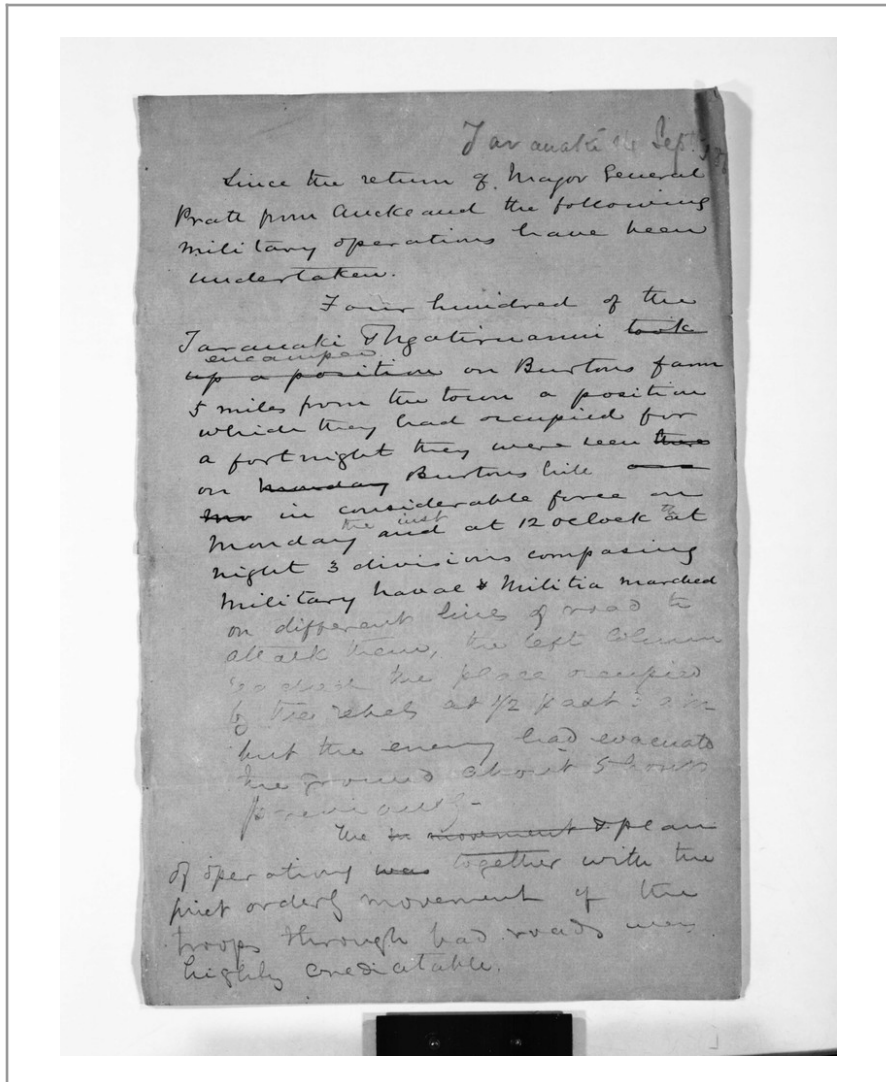 Taranaki 14 Sept.
Since the return of Major General
Pratt from Auckland the following
military operations have been
undertaken.
Four hundred of the
Taranaki & Ngatiruanui took
encamped
up a position on Burtons farm
5 miles from the town a position
which they had occupied for
a fortnight they were seen
on Monday Burtons hill
in considerable force on
the inst
Monday and at 12 oclock at
night 3 divisions composing
Military Naval & Militia marched
on different lines of road to
attack them, the left Column
reached the place occupied
by the rebels at 1/2 past
but the enemy had evacuated
the ground about 5 hours
previously -
The in movement & plan
of operations was together with the
quiet orderly movement of the
troops through bad roads were
highly crediatable.